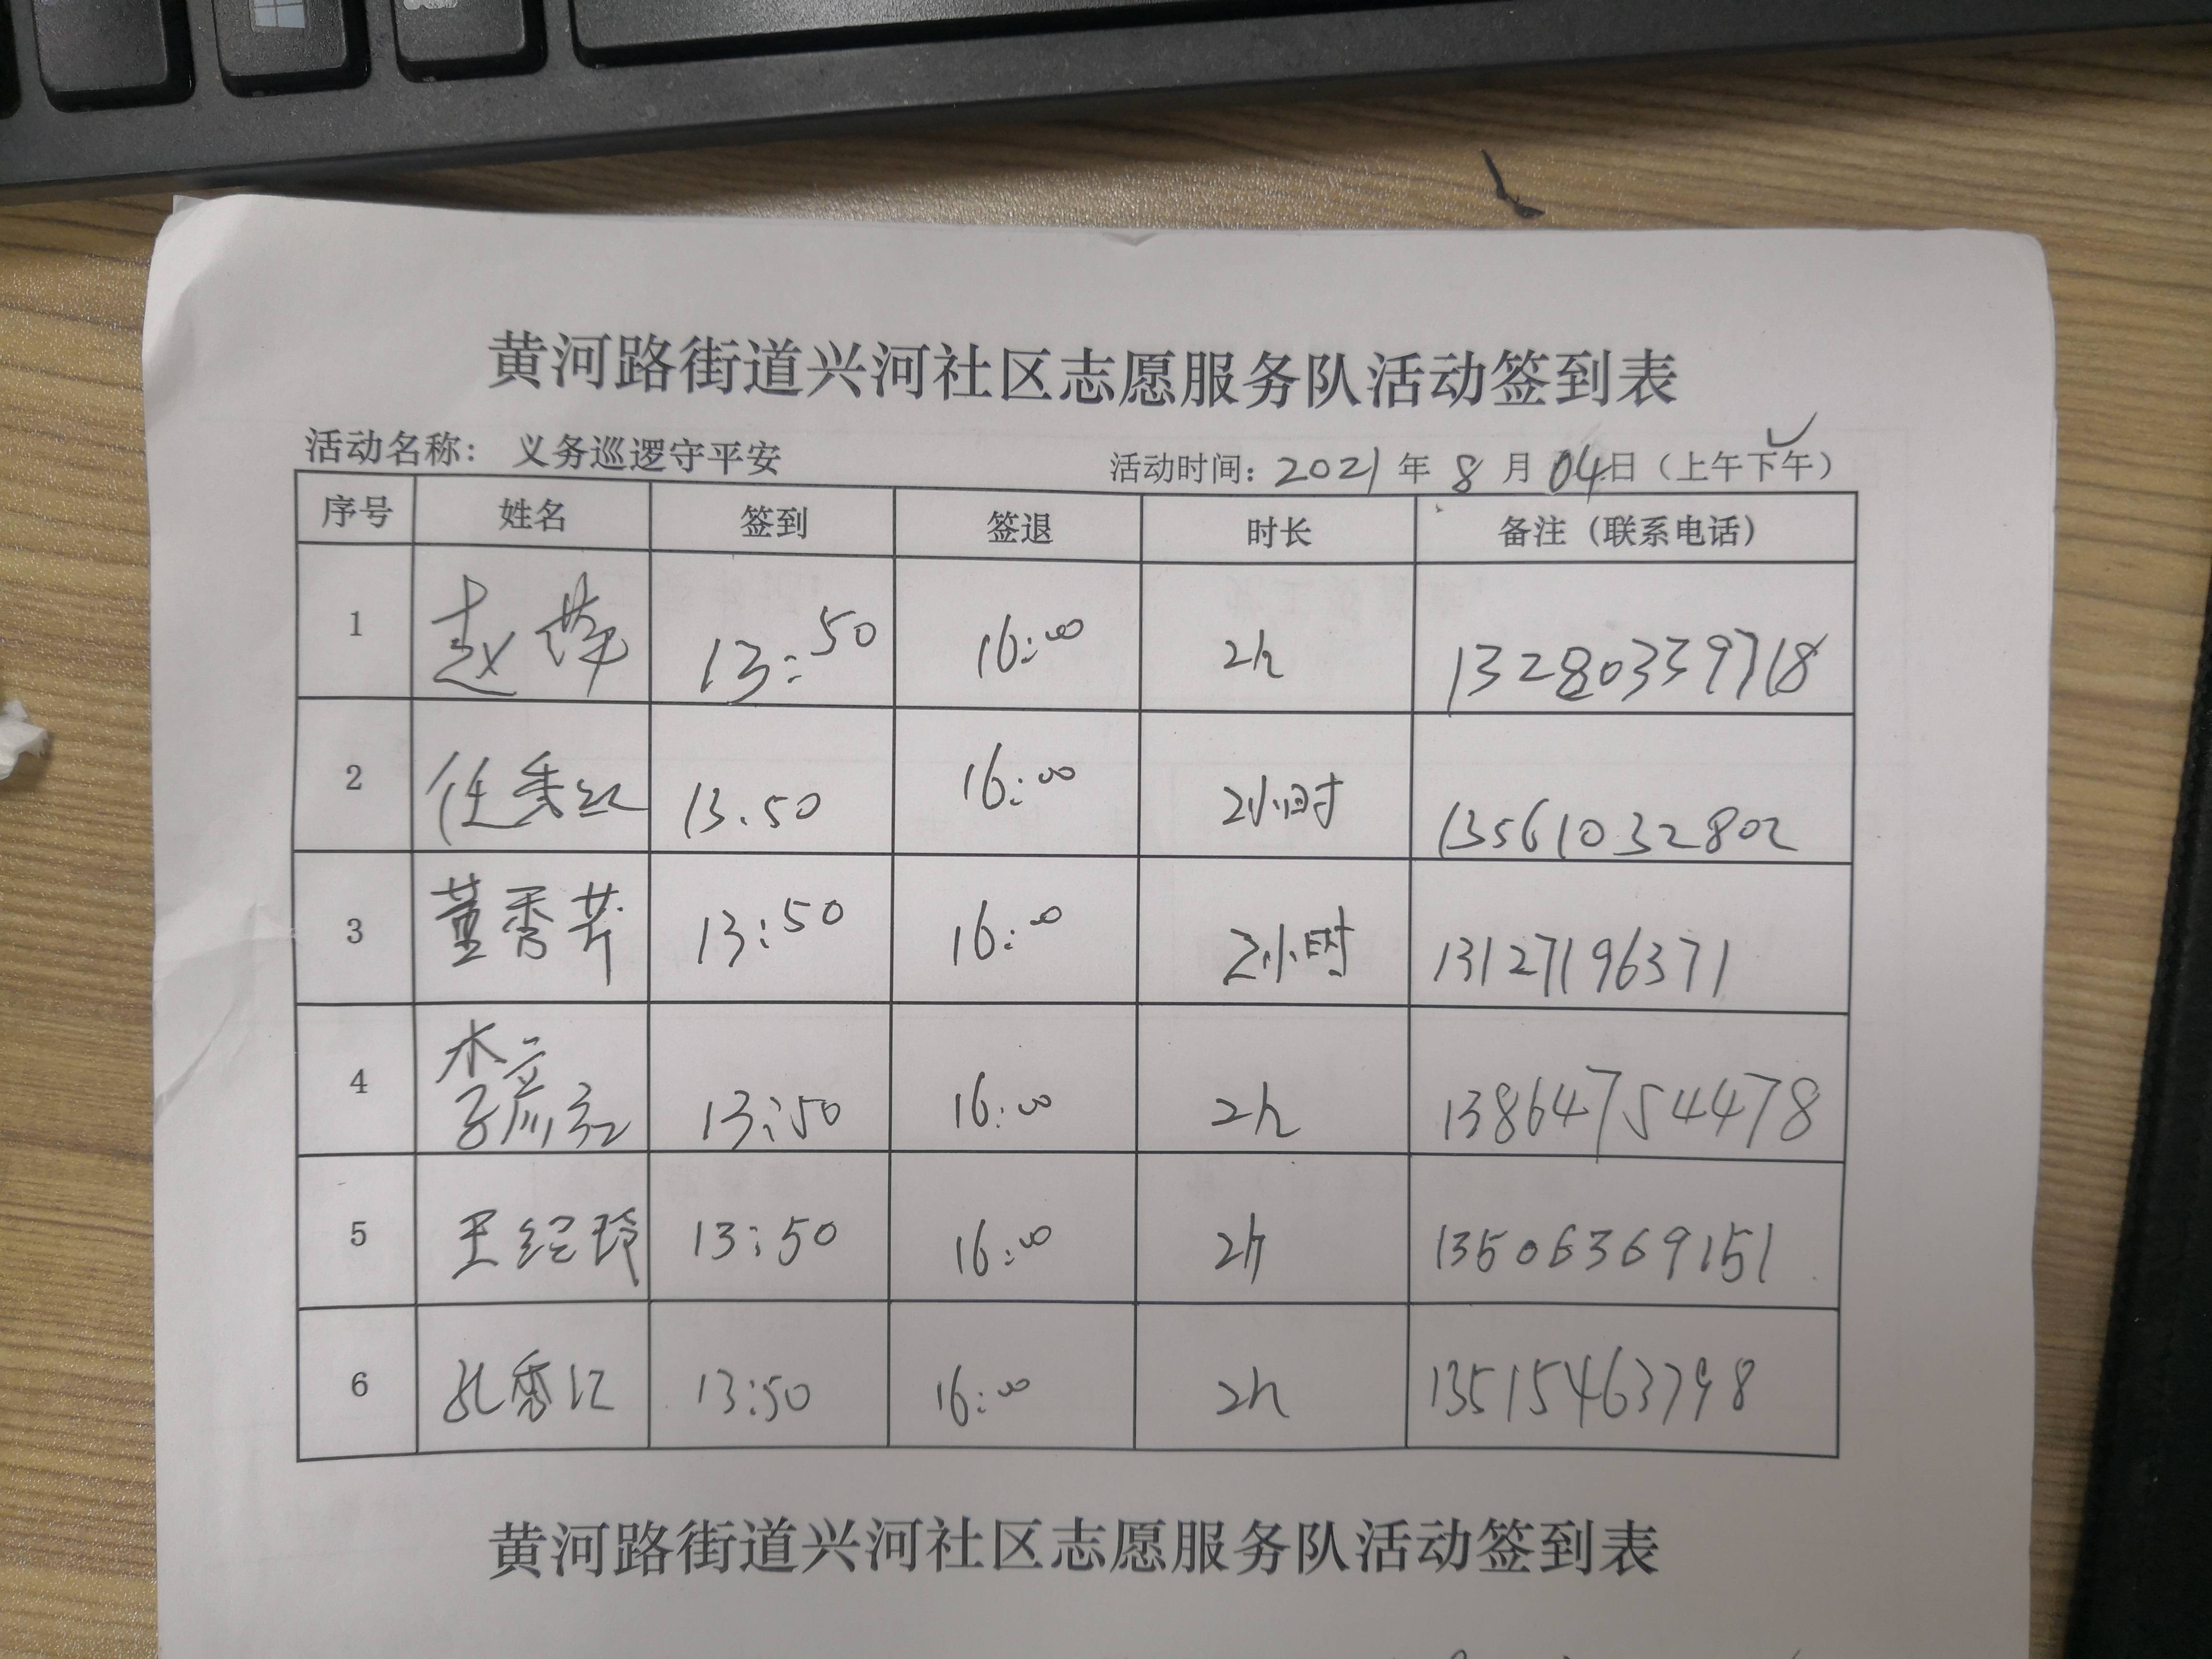 黄河路街道兴河社区志愿服务队活动签到表
活动名称： 义务巡逻守平安 活动时间：2021年 8月 04日（上午下午）
序号 姓名 签到 签退 时长 备注（联系电话）
1 赵萍 13:50 16:00 2h 13280339718
2 任秀红 13.50 16:00 2小时 13561032802
3 董秀芹 13:50 16:00 2小时 13127196371
4 李彦红 13:50 16:00 2h 13864754478
5 王纪玲 13:50 16:00 2h 13506369151
6 孔秀江 13:50 16:00 2h 13515463798
黄河路街道兴河社区志愿服务队活动签到表